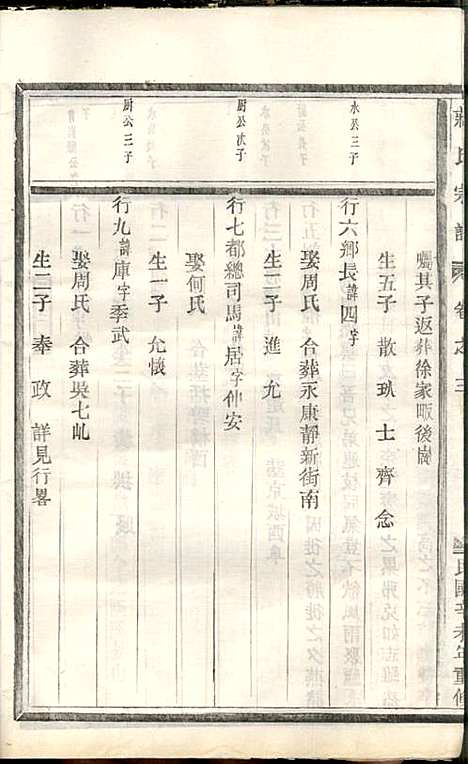 蔣氏宗譜 卷之三 民國辛未年重修
囑其子返葬徐家畈後崗
生五子 散 㺯 士 齊 念
水公三子
行六鄉長諱四字
娶周氏 合葬永康靜新街南
生二子 進 允
厨公次子
行七都總司馬諱居字仲安
娶何氏
生一子 允懷
厨公三子
行九諱庫字季武
娶周氏 合葬吳七山
生二子 奉 政 詳見行畧